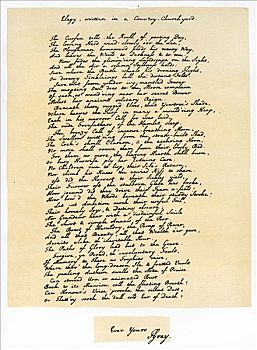 Elegy, written in a Country-Churchyard
The Curfeu tolls the Knell of parting Day,
The lowing Herd wind slowly o'er the Lea,
The Plowman homeward plods his weary Way,
And leaves the World to Darkness & to me.
Now fades the glimmering Landscape on the Sight,
And all the Air a solemn Stillness holds;
Save where the Beetle wheels his droning Flight,
Or drowsy Tinklings lull the distant Folds
Save that from yonder ivy-mantled Tower
The mopeing Owl does to the Moon complain
Of such, as wandring near her secret Bower
Molest her ancient solitary Reign.
Beneath those rugged Elms, that Yewtree's Shade,
Where heaves the Turf in many a mould'ring Heap,
Each in his narrow Cell for ever laid,
The rude Forefathers of the Hamlet sleep.
The breezy Call of incense-breathing Morn,
The Swallow twitt'ring from the straw-built Shed,
The Cock's shrill Clarion, & the ecchoing Horn,
No more shall rouse them from their lowly Bed.
For them no more the blazing Hearth shall burn,
Or busy Huswife ply her Evening Care;
No Children run to lisp their Sire's Return,
Nor climb his Knees the envied Kiss to share.
Oft did the Harvest to their Sickle yield,
Their Furrow oft the stubborn Glebe has broke;
How jocund did they drive their Team a-field!
How bow'd the Woods beneath their sturdy Stroke!
Let not Ambition mock their useful Toil,
Their homely Joys & Destiny obscure;
Nor Grandeur hear with a disdainful Smile
The short & simple Annals of the Poor.
The Boast of Heraldry, the Pomp of Power,
And all that Beauty, all that Wealth e'er gave,
Awaits alike th' inevitable Hour.
The Paths of Glory lead but to the Grave
Forgive, ye Proud, th' involuntary Fault,
If Memory to these no Trophies raise,
Where thro' the long-drawn Ile, & fretted Vault
The pealing Anthem swells the Note of Praise
Can storied Urn or animated Bust
Back to its Mansion call the fleeting Breath?
Can Honour's Voice provoke the silent Dust,
Or Flatt'ry sooth the dull cold Ear of Death?
Ever Yours
TGray.